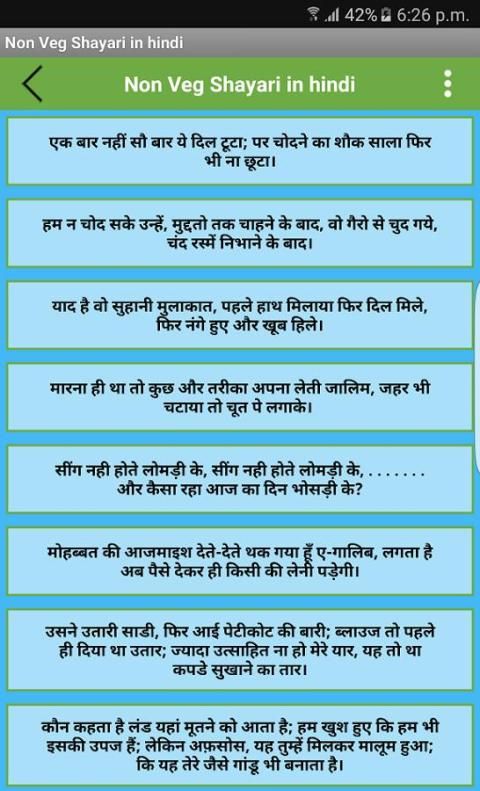 42% 6:26 p.m.
Non Veg Shayari in hindi
Non Veg Shayari in hindi
एक बार नहीं सौ बार ये दिल टूटा; पर चोदने का शौक साला फिर
भी ना छूटा।
हम न चोद सके उन्हें, मुद्दतो तक चाहने के बाद, वो गैरो से चुद गये,
चंद रस्में निभाने के बाद।
याद है वो सुहानी मुलाकात, पहले हाथ मिलाया फिर दिल मिले,
फिर नंगे हुए और खूब हिले।
मारना ही था तो कुछ और तरीका अपना लेती जालिम, जहर भी
चटाया तो चूत पे लगाके।
सींग नही होते लोमड़ी के, सींग नही होते लोमड़ी के, . . . . . . .
और कैसा रहा आज का दिन भोसड़ी के?
मोहब्बत की आजमाइश देते-देते थक गया हूँ ए-गालिब, लगता है
अब पैसे देकर ही किसी की लेनी पड़ेगी।
उसने उतारी साडी, फिर आई पेटीकोट की बारी; ब्लाउज तो पहले
ही दिया था उतार; ज्यादा उत्साहित ना हो मेरे यार, यह तो था
कपडे सुखाने का तार।
कौन कहता है लंड यहां मूतने को आता है; हम खुश हुए कि हम भी
इसकी उपज हैं; लेकिन अफ़सोस, यह तुम्हें मिलकर मालूम हुआ;
कि यह तेरे जैसे गांडू भी बनाता है।